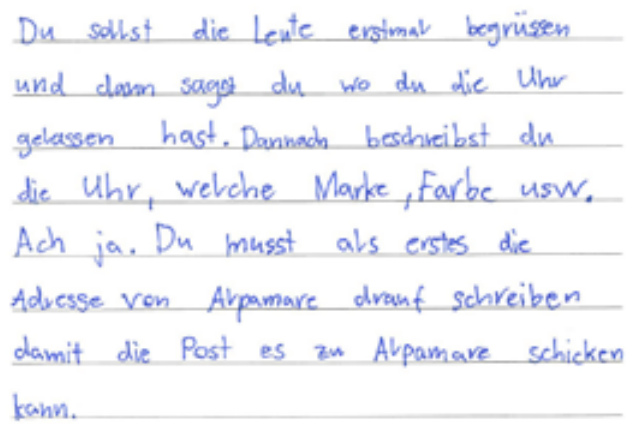 Du sollst die Leute erstmal begrüssen
und dann sagst du wo du die Uhr
gelassen hast. Dannach beschreibst du
die Uhr, welche Marke, Farbe usw.
Ach ja. Du musst als erstes die
Adresse von Alpamare drauf schreiben
damit die Post es zu Alpamare schicken
kann.